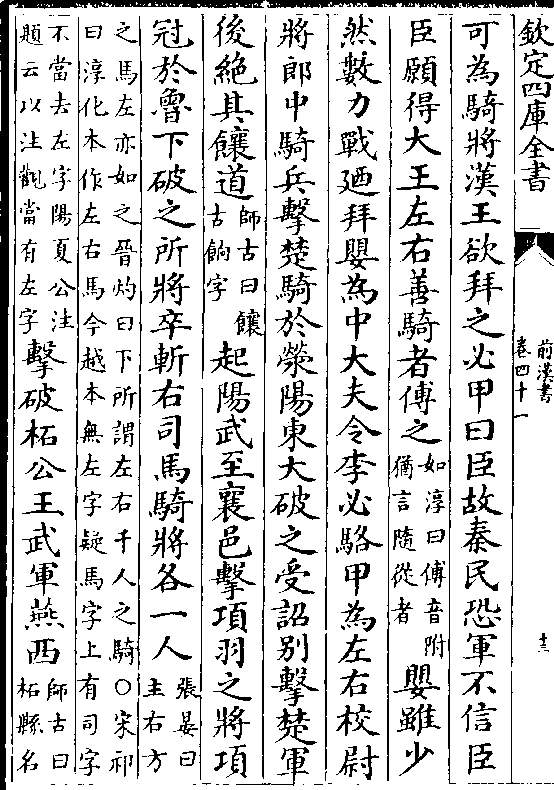 欽定四庫全書
前漢書
卷四十一
十三
可為騎將漢王欲拜之必甲曰臣故秦民恐軍不信臣
臣願得大王左右善騎者傅之如淳曰傅音附猶言隨從者嬰雖少
然數力戰廼拜嬰為中大夫令李必駱甲為左右校尉
將郎中騎兵擊楚騎於滎陽東大破之受詔别擊楚軍
後絶其饟道師古曰饟古餉字起陽武至襄邑擊項羽之將項
冠於魯下破之所將卒斬右司馬騎將各一人張晏曰主右方
之馬左亦如之晉灼曰下所謂左右千人之騎○宋祁
曰淳化本作左右馬今越本無左字疑馬字上有司字
不當去左字陽夏公注
題云以注觀當有左字擊破柘公王武軍燕西師古曰柘縣名